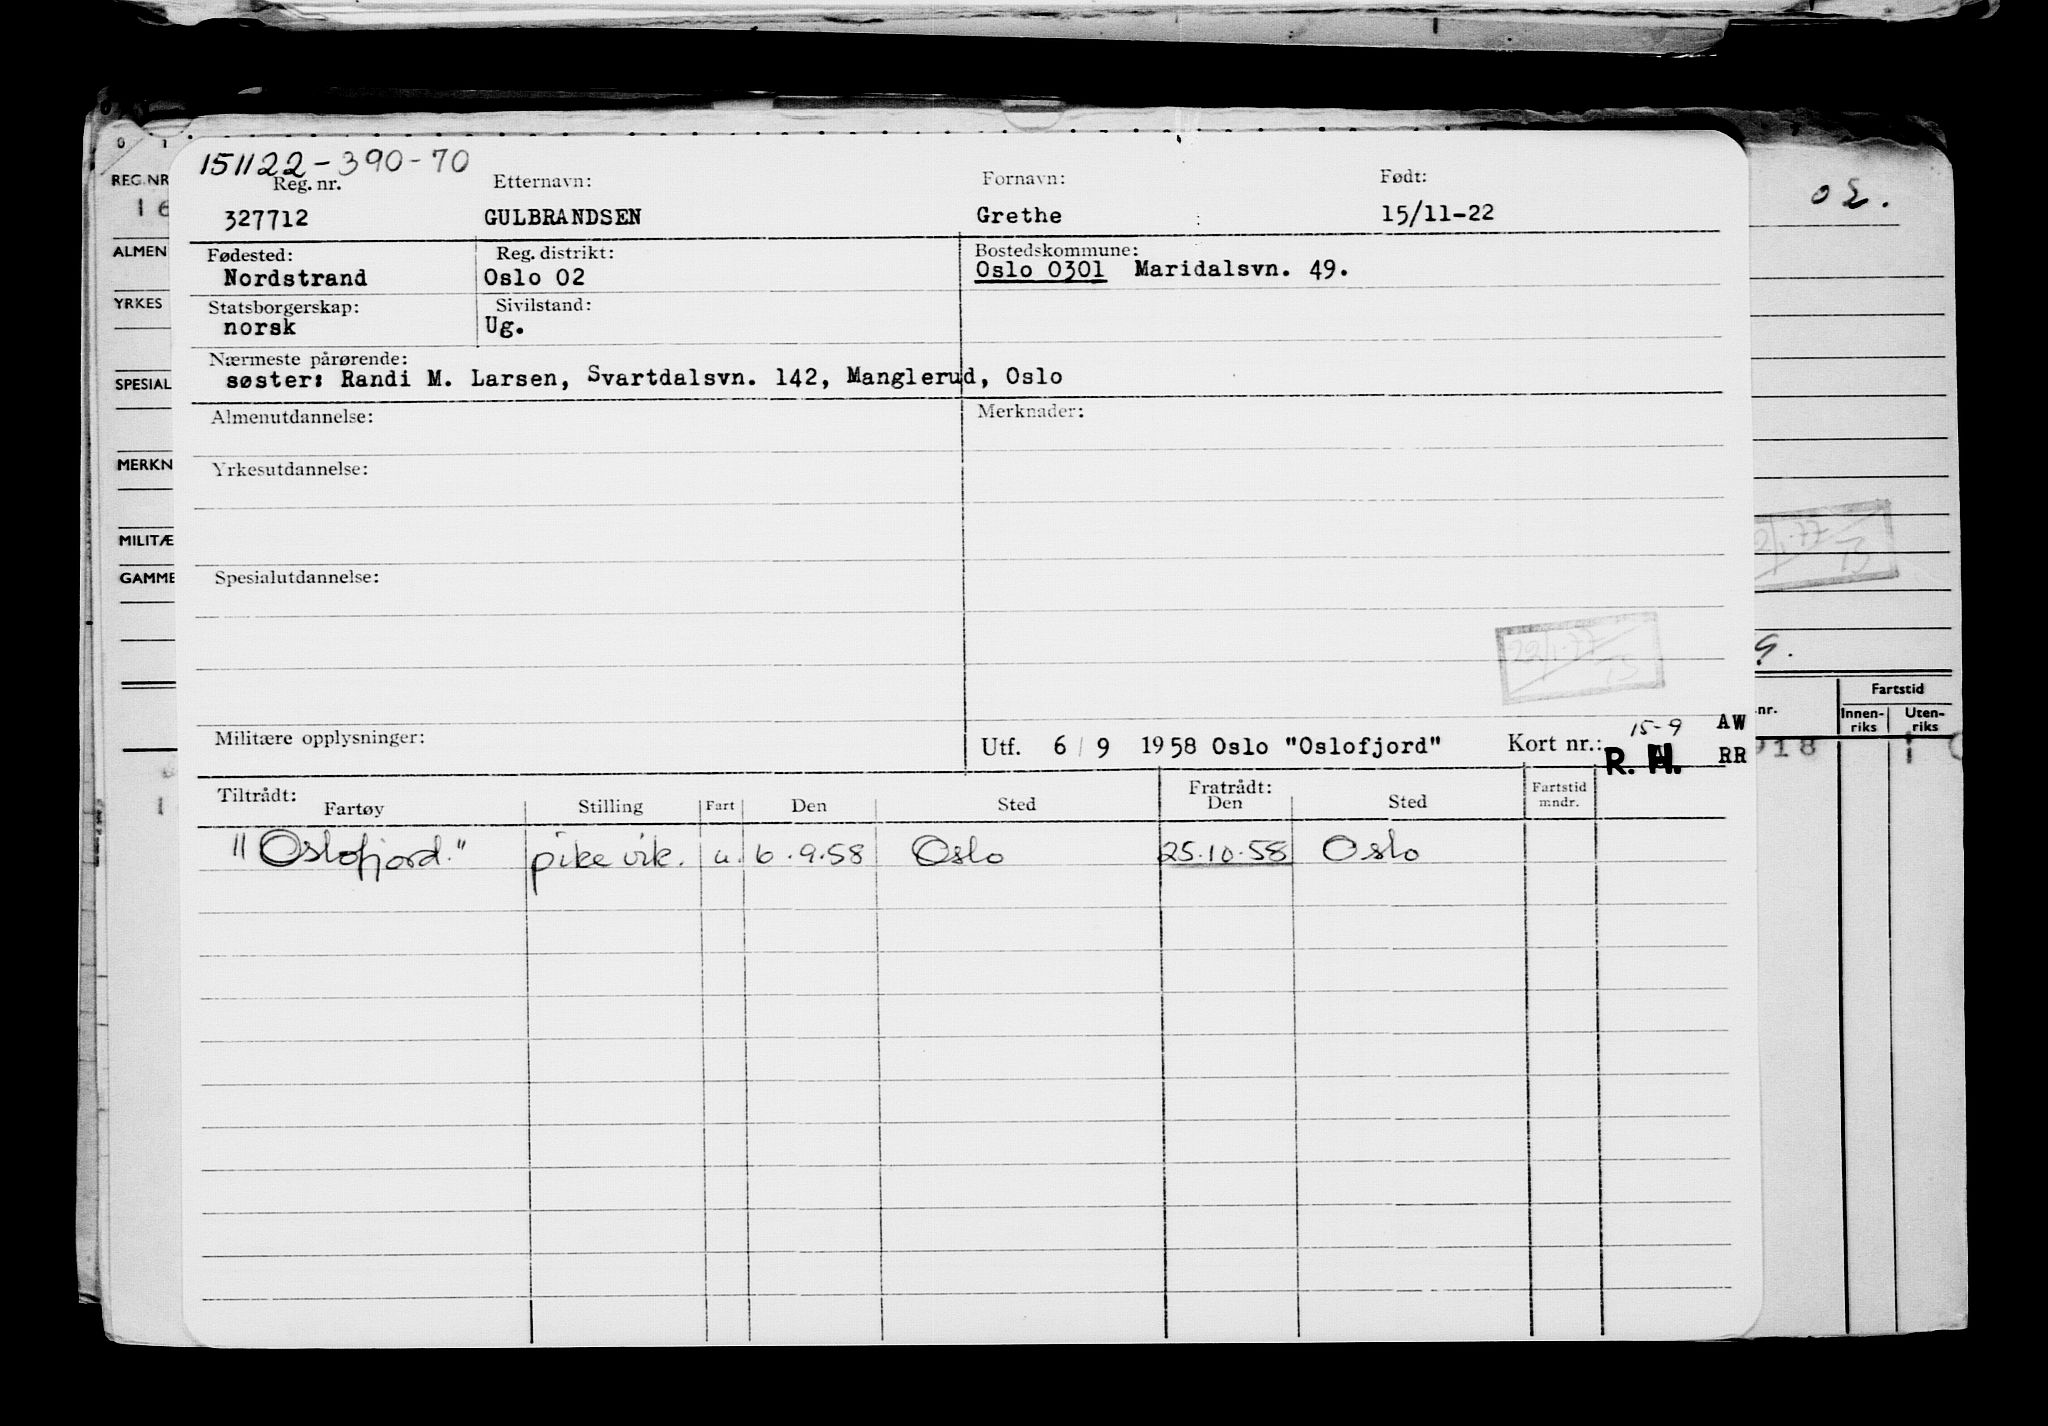 151122-390-70
Reg. nr. Etternavn: Fornavn: Født:
327712 GULBRANDSEN Grethe 15/11-22
Fødested: Reg. distrikt: Bostedskommune:
Nordstrand Oslo 02 Oslo 0301 Maridalsvn. 49.
Statsborgerskap: Sivilstand:
norsk Ug.
Nærmeste pårørende:
søster: Randi M. Larsen, Svartdalsvn. 142, Manglerud, Oslo
Almenutdannelse: Merknader:
Yrkesutdannelse:
Spesialutdannelse:
22/1-77
Militære opplysninger: Utf. 6/9 1958 Oslo "Oslofjord" Kort nr.: 15-9 AW
R. H. RR
Tiltrådt: Fratrådt:
Fartøy Stilling Fart Den Sted Den Sted Fartstid mndr.
"Oslofjord." pike vik. u. 6.9.58 Oslo 25.10.58 Oslo
REG.NR
16
ALMEN
YRKES
SPESIAL
MERKN
MILITÆ
GAMME
02.
2/1-77
G.
nr. Fartstid
Innen-riks Uten-riks
18 1